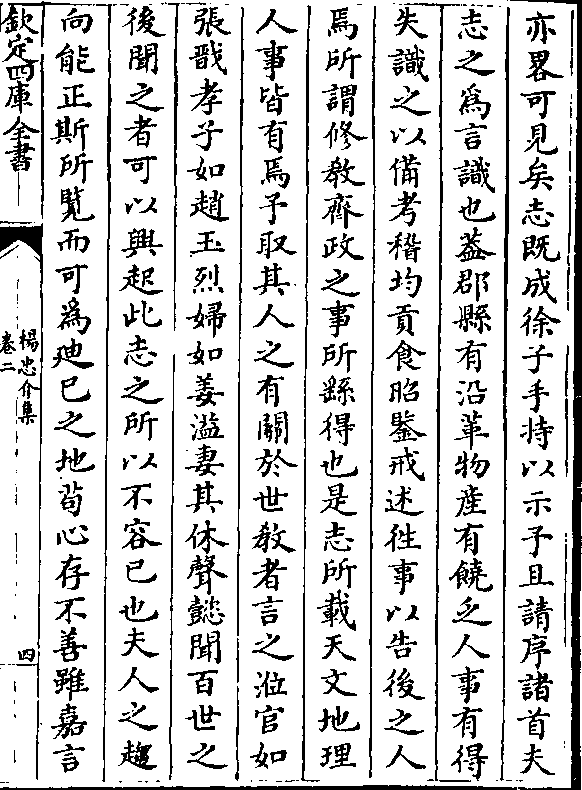 亦畧可見矣志既成徐子手持以示予且請序諸首夫
志之為言識也葢郡縣有沿革物産有饒乏人事有得
失識之以備考稽均貢食昭鍳戒述徃事以告後之人
焉所謂修敎齊政之事所繇得也是志所載天文地理
人事皆有焉予取其人之有關於世敎者言之涖官如
張戩孝子如趙玉烈婦如姜溢妻其休聲懿聞百世之
後聞之者可以興起此志之所以不容已也夫人之趨
向能正斯所覧而可為廸已之地茍心存不善雖嘉言
欽定四庫全書
楊忠介集
卷二
四